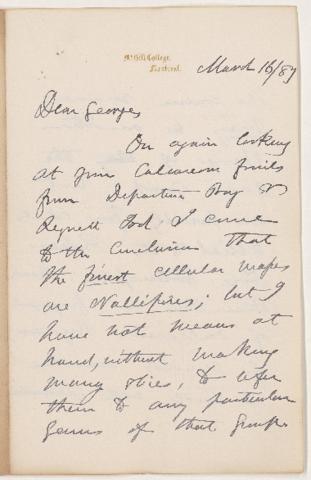 McGill College,
Montreal.
March 16/87
Dear George
On again looking
at your Calcareous fossils
from Departure Bay &
I came
to the conclusion that
the finest cellular
are Nullipores; but I
have not means at
hand, without making
many slices, to refer
them to any particular
genus of that group